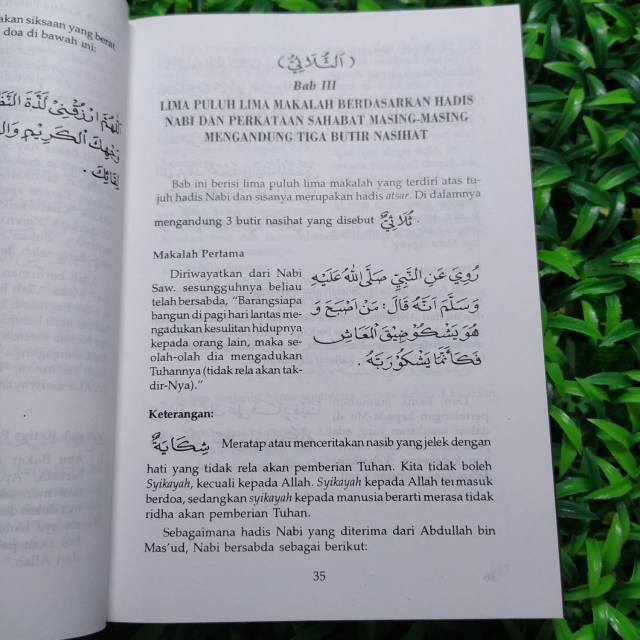 akan siksaan yang berat
doa di bawah ini:
اَللّٰهُمَّ ارْزُقْنِيْ لَذَّةَ النَّظَ
وَجْهِكَ الْكَرِيْمِ وَال
لِقَائِكَ .
(اَلثُّلَاثِيُّ)
Bab III
LIMA PULUH LIMA MAKALAH BERDASARKAN HADIS
NABI DAN PERKATAAN SAHABAT MASING-MASING
MENGANDUNG TIGA BUTIR NASIHAT
Bab ini berisi lima puluh lima makalah yang terdiri atas tu-
juh hadis Nabi dan sisanya merupakan hadis atsar. Di dalamnya
mengandung 3 butir nasihat yang disebut ثُلَاثِيٌّ .
Makalah Pertama
Diriwayatkan dari Nabi
Saw. sesungguhnya beliau
telah bersabda, "Barangsiapa
bangun di pagi hari lantas me-
ngadukan kesulitan hidupnya
kepada orang lain, maka se-
olah-olah dia mengadukan
Tuhannya (tidak rela akan tak-
dir-Nya)."
رُوِيَ عَنِ النَّبِيِّ صَلَّى اللهُ عَلَيْهِ
وَسَلَّمَ اَنَّهُ قَالَ: مَنْ اَصْبَحَ وَ
هُوَ يَشْكُوْ ضِيْقَ الْمَعَاشِ
فَكَاَنَّمَا يَشْكُوْ رَبَّهُ .
Keterangan:
شِكَايَةٌ Meratap atau menceritakan nasib yang jelek dengan
hati yang tidak rela akan pemberian Tuhan. Kita tidak boleh
Syikayah, kecuali kepada Allah. Syikayah kepada Allah termasuk
berdoa, sedangkan syikayah kepada manusia berarti merasa tidak
ridha akan pemberian Tuhan.
Sebagaimana hadis Nabi yang diterima dari Abdullah bin
Mas'ud, Nabi bersabda sebagai berikut:
35